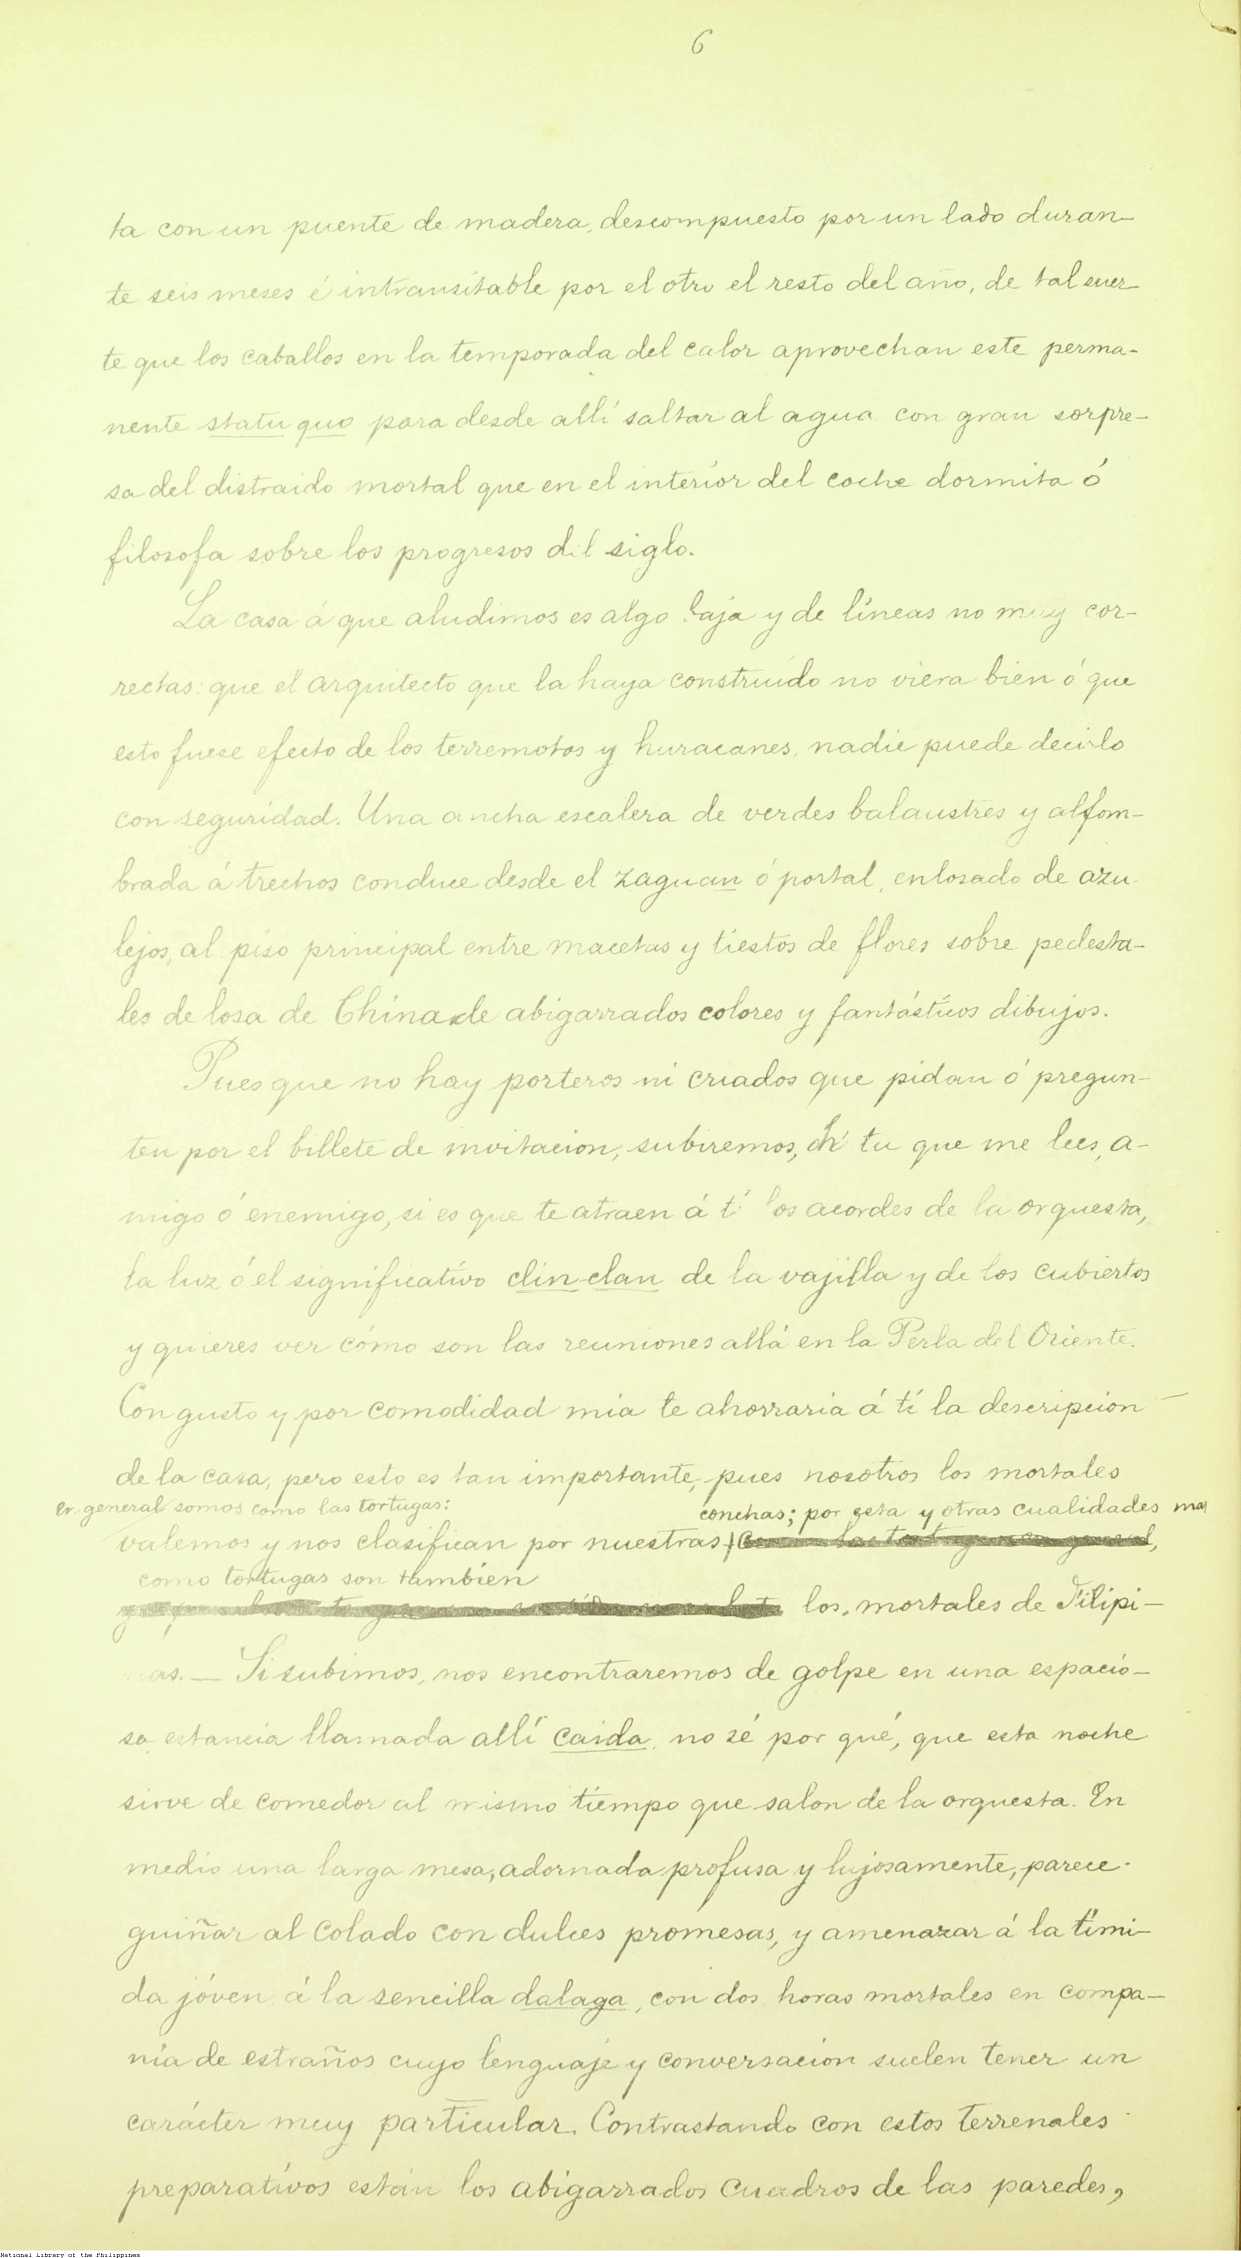 6
ta con un puente de madera, descompuesto por un lado duran-
te seis meses é intransitable por el otro el resto del año, de tal suer-
te que los caballos en la temporada del calor aprovechan este perma-
nente statu quo para desde allí saltar al agua con gran sorpre-
sa del distraido mortal que en el interior del coche dormita ó
filosofa sobre los progresos del siglo.
La casa á que aludimos es algo baja y de líneas no muy cor-
rectas: que el arquitecto que la haya construido no viera bien ó que
esto fuese efecto de los terremotos y huracanes, nadie puede decirlo
con seguridad. Una ancha escalera de verdes balaustres y alfom-
brada á trechos conduce desde el zaguan ó portal, enlosado de azu-
lejos, al piso principal entre macetas y tiestos de flores sobre pedesta-
les de losa de China de abigarrados colores y fantásticos dibujos.
Pues que no hay porteros ni criados que pidan ó pregun-
ten por el billete de invitacion, subiremos, oh tu que me lees, a-
migo ó enemigo, si es que te atraen á tí los acordes de la orquesta,
la luz ó el significativo clin-clan de la vajilla y de los cubiertos
y quieres ver cómo son las reuniones allá en la Perla del Oriente.
Con gusto y por comodidad mia te ahorraria á tí la descripcion
de la casa, pero esto es tan importante, pues nosotros los mortales
en general somos como las tortugas: conchas; por esta y otras cualidades mas
valemos y nos clasifican por nuestras
como tortugas son tambien
los mortales de Filipi-
nas. — Si subimos, nos encontraremos de golpe en una espacio-
sa estancia llamada allí caida, no sé por qué, que esta noche
sirve de comedor al mismo tiempo que salon de la orquesta. En
medio una larga mesa, adornada profusa y lujosamente, parece
guiñar al colado con dulces promesas, y amenazar á la tími-
da jóven á la sencilla dalaga, con dos horas mortales en compa-
nía de estraños cuyo lenguaje y conversacion suelen tener un
carácter muy particular. Contrastando con estos terrenales
preparativos están los abigarrados cuadros de las paredes,
National Library of the Philippines